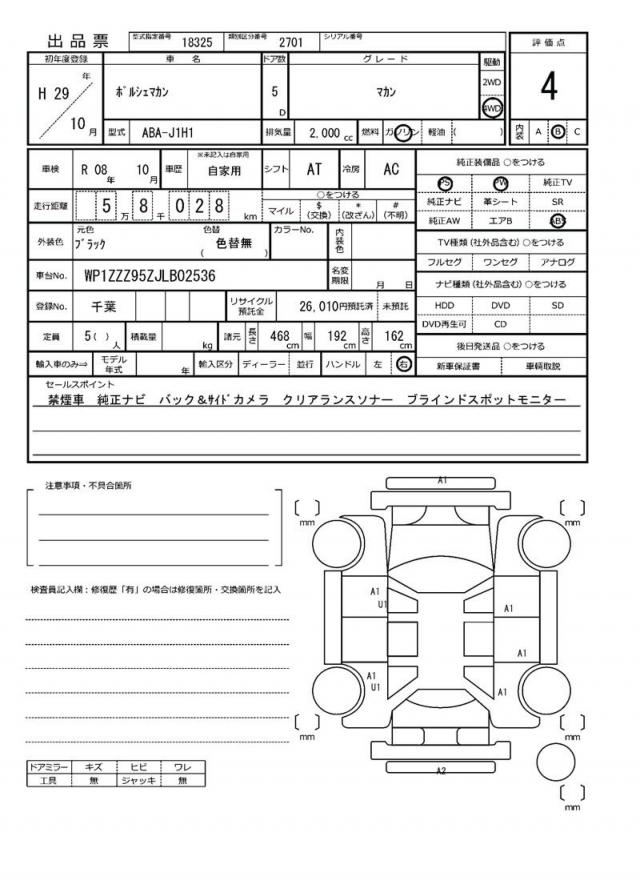 出品票 型式指定番号 18325 類別区分番号 2701 シリアル番号
評価点
4
初年度登録 車名 ドア数 グレード 駆動
H 29 年 ポルシェマカン 5 D マカン 2WD
4WD
10 月 型式 ABA-J1H1 排気量 2,000 cc 燃料 ガソリン 軽油 ( ) 内装 A B C
車検 R 08 年 10 月 車歴 ※未記入は自家用 自家用 シフト AT 冷房 AC
走行距離 5 万 8 千 0 2 8 km ○をつける
マイル $ (交換) * (改ざん) # (不明)
外装色 元色 ブラック 色替 色替無 ( ) カラーNo. 内装色
車台No. WP1ZZZ95ZJLB02536 名変期限 月 日
登録No. 千葉 リサイクル預託金 26,010円預託済 未預託
定員 5 ( ) 人 積載量 kg 諸元 長さ 468 cm 幅 192 cm 高さ 162 cm
輸入車のみ⇒ モデル年式 年 輸入区分 ディーラー 並行 ハンドル 左 右
純正装備品 ○をつける
PS PW 純正TV
純正ナビ 革シート SR
純正AW エアB ABS
TV種類 (社外品含む) ○をつける
フルセグ ワンセグ アナログ
ナビ種類 (社外品含む) ○をつける
HDD DVD SD
DVD再生可 CD
後日発送品 ○をつける
新車保証書 車輌取説
セールスポイント
禁煙車 純正ナビ バック&ｻｲﾄﾞカメラ クリアランスソナー ブラインドスポットモニター
注意事項・不具合箇所
検査員記入欄：修復歴「有」の場合は修復箇所・交換箇所を記入
ドアミラー キズ ヒビ ワレ
工具 無 ジャッキ 無
A1
mm mm
A1
U1 A1
A1
A1
U1 A1
mm mm
A2
mm